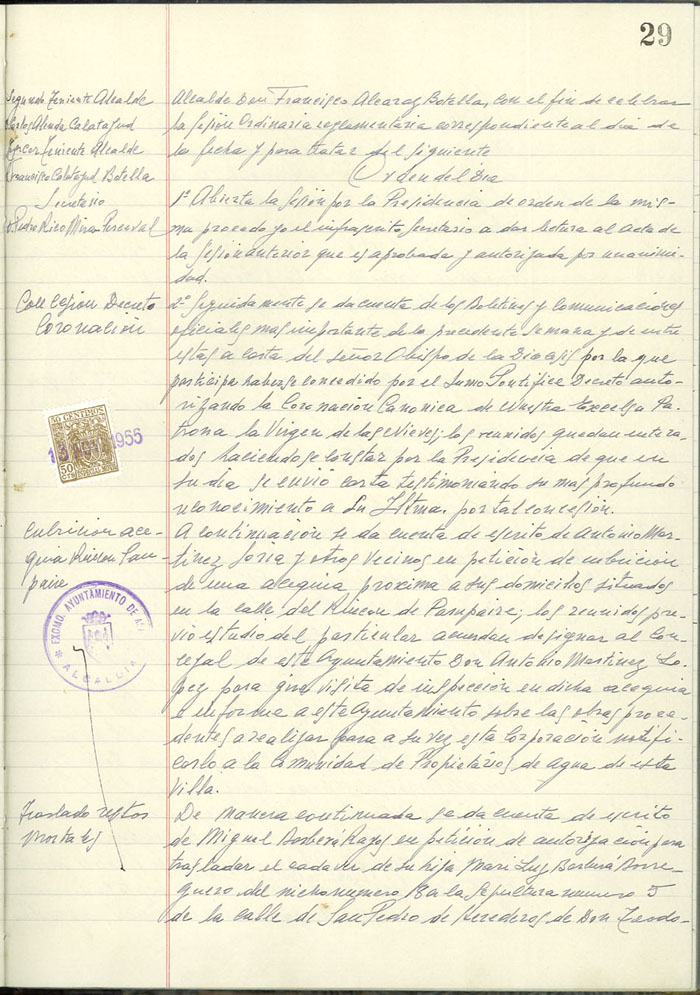 29
Segundo Teniente Alcalde
Carlos Abuda Calatayud
Tercer Teniente Alcalde
Francisco Calatayud Botella
Secretario
D. Pedro Rico Mira-Perceval
Alcalde Don Francisco Alcaraz Botella, con el fin de celebrar
la sesión Ordinaria reglamentaria correspondiente al dia de
la fecha y para tratar del siguiente
Orden del Dia
1º Abierta la sesión por la Presidencia de orden de la mis-
ma procedo yo el infrascrito Secretario a dar lectura al acta de
la sesión anterior que es aprobada y autorizada por unanimi-
dad.
Concesión Decreto
Coronación
2º Seguidamente se da cuenta de los Boletines y comunicaciones
oficiales mas importante de la precedente semana y de entre
estas a carta del Señor Obispo de la Diocesis por la que
participa haberse concedido por el Sumo Pontifice Decreto auto-
rizando la Coronación Canonica de nuestra Excelsa Pa-
trona la Virgen de las Nieves; los reunidos quedan entera-
dos haciendose constar por la Presidencia de que en
su dia se envió carta testimoniando su mas profundo
reconocimiento a Su Iltma. por tal concesión.
50 CENTIMOS
50
1955
Cubricion ace-
quia Rincon Pam-
paire
A continuación se da cuenta de escrito de Antonio Mar-
tinez Soria y otros vecinos en petición de cubricion
de una acequia proxima a sus domicilios situados
en la calle del Rincon de Pampaire; los reunidos pre-
vio estudio del particular acuerdan designar al Con-
cejal de este Ayuntamiento Don Antonio Martinez Lo-
pez para gire visita de inspección en dicha acequia
e informe a este Ayuntamiento sobre las obras proce-
dentes a realizar para a su vez esta Corporación notifi-
carlo a la Comunidad de Propietarios de agua de esta
Villa.
EXCMO. AYUNTAMIENTO DE
ALCALDIA
Traslado restos
mortales
De manera continuada se da cuenta de escrito
de Miguel Berberá Razos en petición de autorización para
trasladar el cadaver de su hija Mari Luz Berberá Borre-
guero del nicho numero 18 a la sepultura numero 5
de la calle de San Pedro de Herederos de Don Teodo-